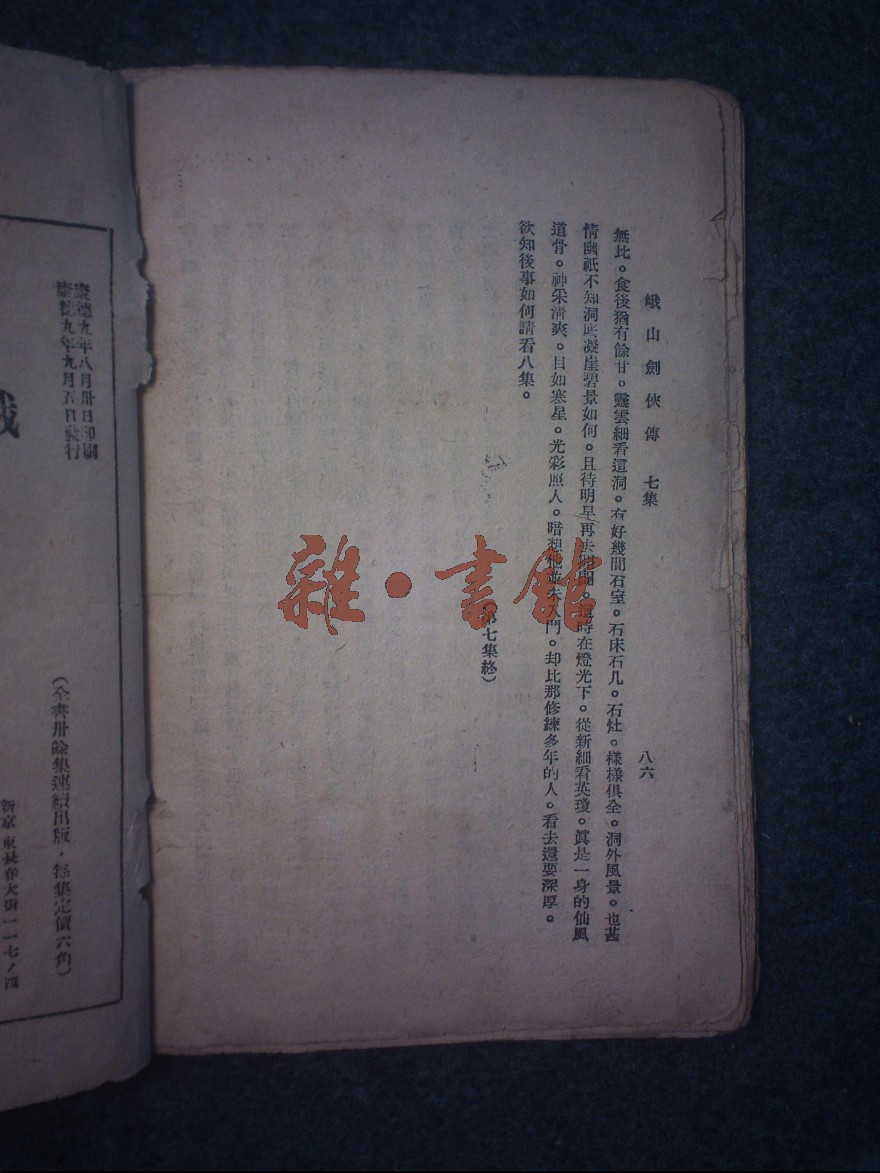 峨山劍俠傳　七集
八六
無比。食後猶有餘甘。靈雲細看這洞。有好幾間石室。石床石几。石灶。樣樣俱全。洞外風景。也甚
情幽祇不知洞底凝崖碧景如何。且待明早再去開闢。這時在燈光下。從新細看英瓊。眞是一身的仙風
道骨。神采清爽。目如寒星。光彩照人。暗想他並未入門。却比那修練多年的人。看去還要深厚。
欲知後事如何請看八集。
(第七集終)
雜·書館
康德九年八月卅日印刷
康德九年九月五日發行
(全書卅餘集連續出版·每集定價六角)
新京東長春大街一一七ノ四